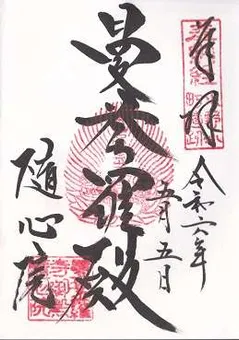 奉拝
令和六年
五月五日
曼荼羅殿
随心院